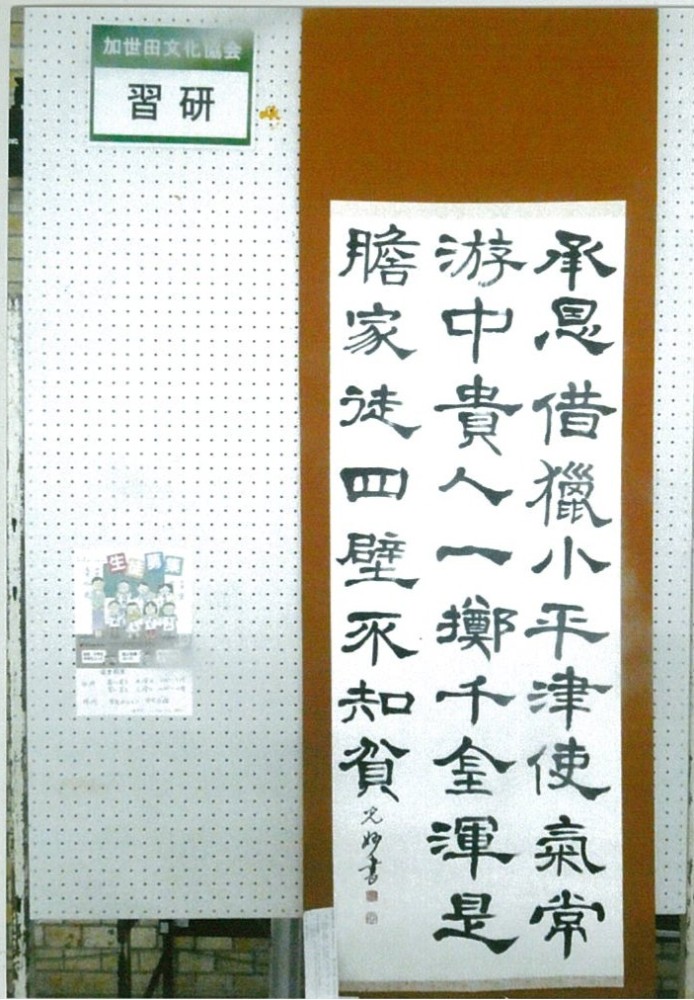 加世田文化協会
習研
承恩借獵小平津使氣常
游中貴人一擲千金渾是
膽家徒四壁不知貧
書
生